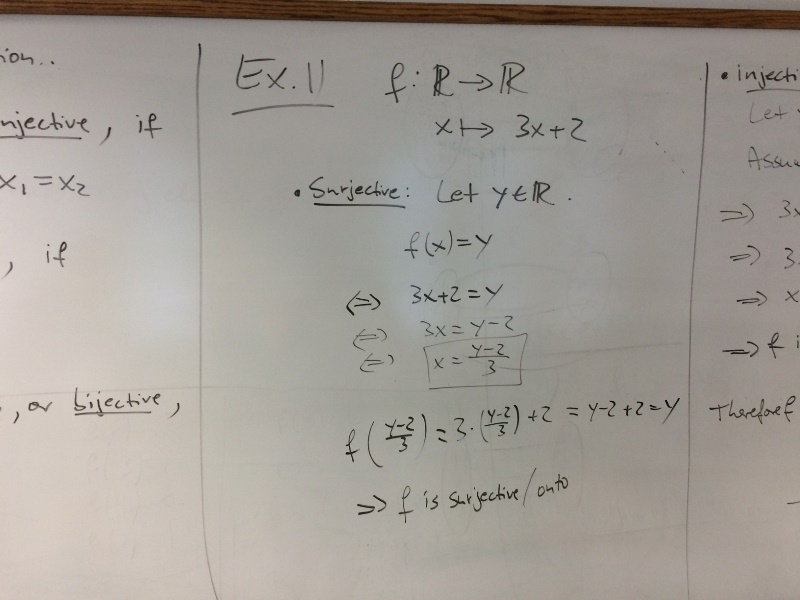 ion..
njective, if
x₁ = x₂
, if
, or bijective,
Ex.1)
f: ℝ → ℝ
x ↦ 3x+2
• Surjective: Let y ∈ ℝ.
f(x) = y
⇔ 3x+2 = y
⇔ 3x = y-2
⇔ x = (y-2)/3
f((y-2)/3) = 3·((y-2)/3) + 2 = y-2+2 = y
⇒ f is surjective/onto
• injecti
Let
Assum
⇒ 3x
⇒ 3
⇒ x
⇒ f i
Therefore f